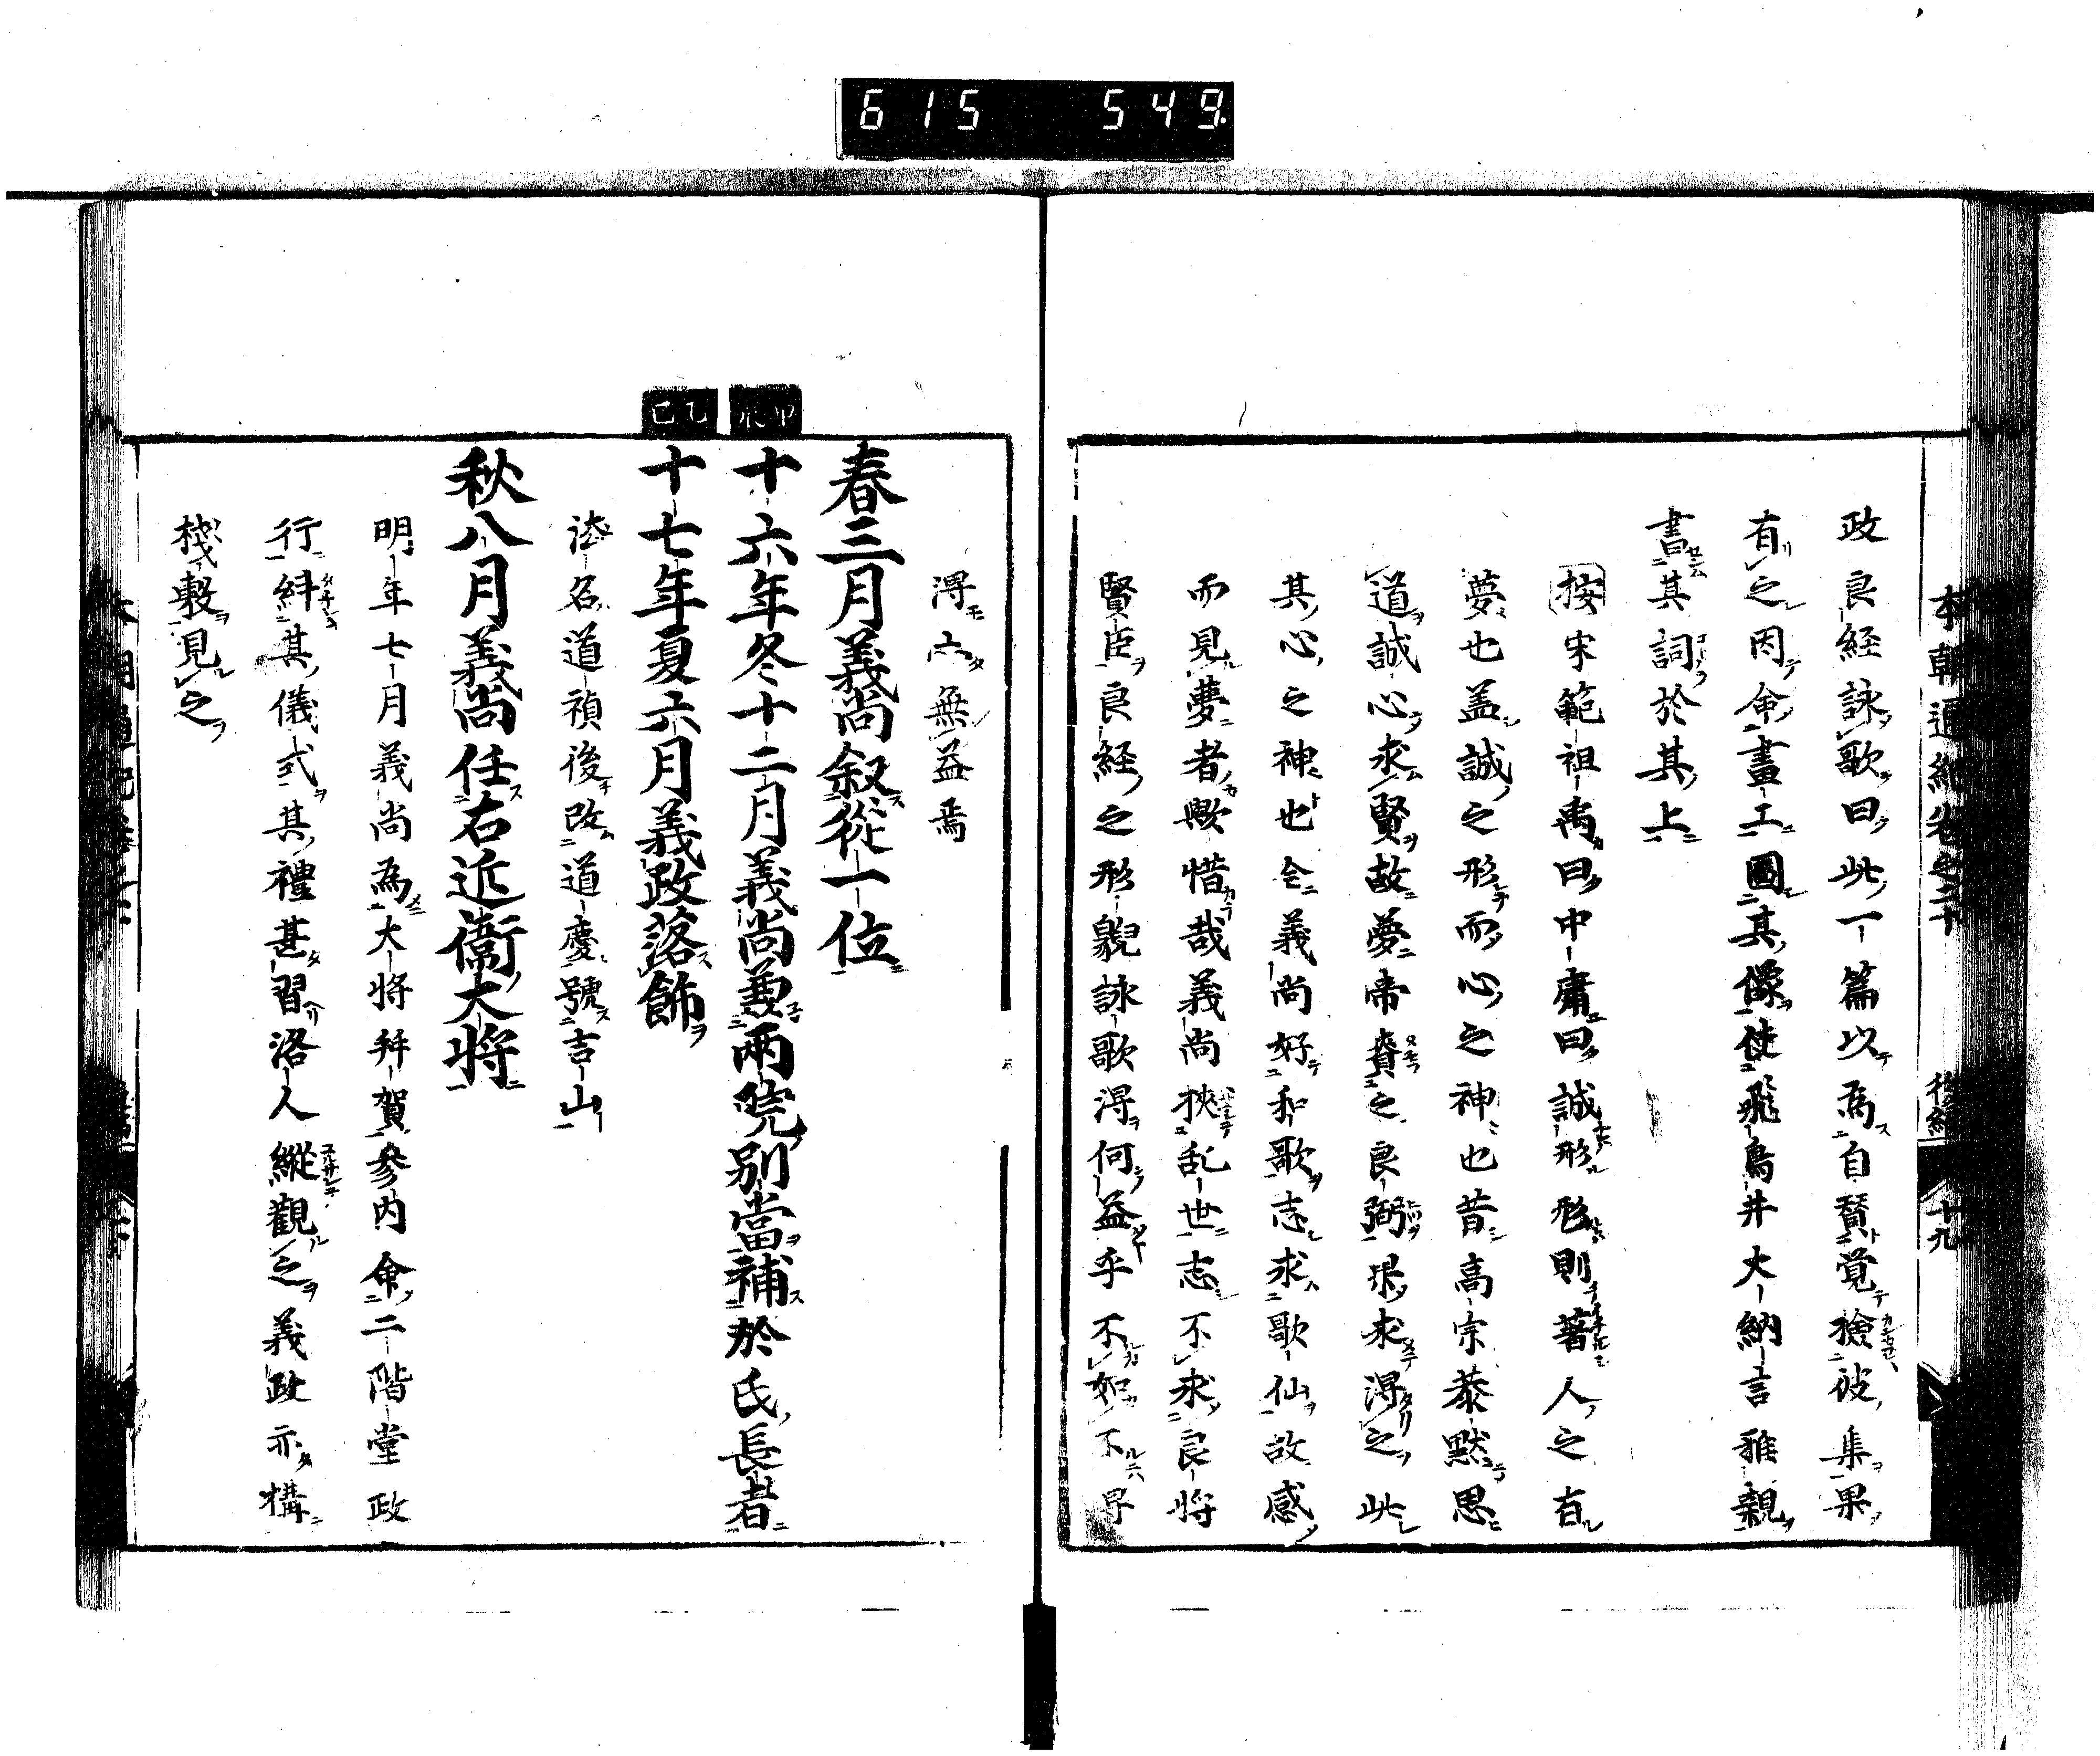 615 549
本朝通紀卷之二十 後編 十九
政良経詠歌曰此一篇以為自賛覚撿彼集果
有之因命畫工圖其像使飛鳥井大納言雅親
書其詞於其上
按宋範祖禹曰中庸曰誠形形則著人之有
夢也盖誠之形而心之神也昔高宗恭黙思
道誠心求賢故夢帝賚之良弼果求得之此
其心之神也今義尚好和歌志求歌仙故感
而見夢者歟惜哉義尚挾乱世志不求良将
賢臣良経之形貌詠歌得何益乎不如不得
得亦無益焉
春三月義尚叙從一位
甲辰
十六年冬十二月義尚兼兩院別當補於氏長者
乙巳
十七年夏六月義政落飾
法名道禎後改道慶號吉山
秋八月義尚任右近衞大将
明年七月義尚為大将拜賀參内命二階堂政
行糾其儀式其禮甚習洛人縱觀之義政亦構
棧敷見之